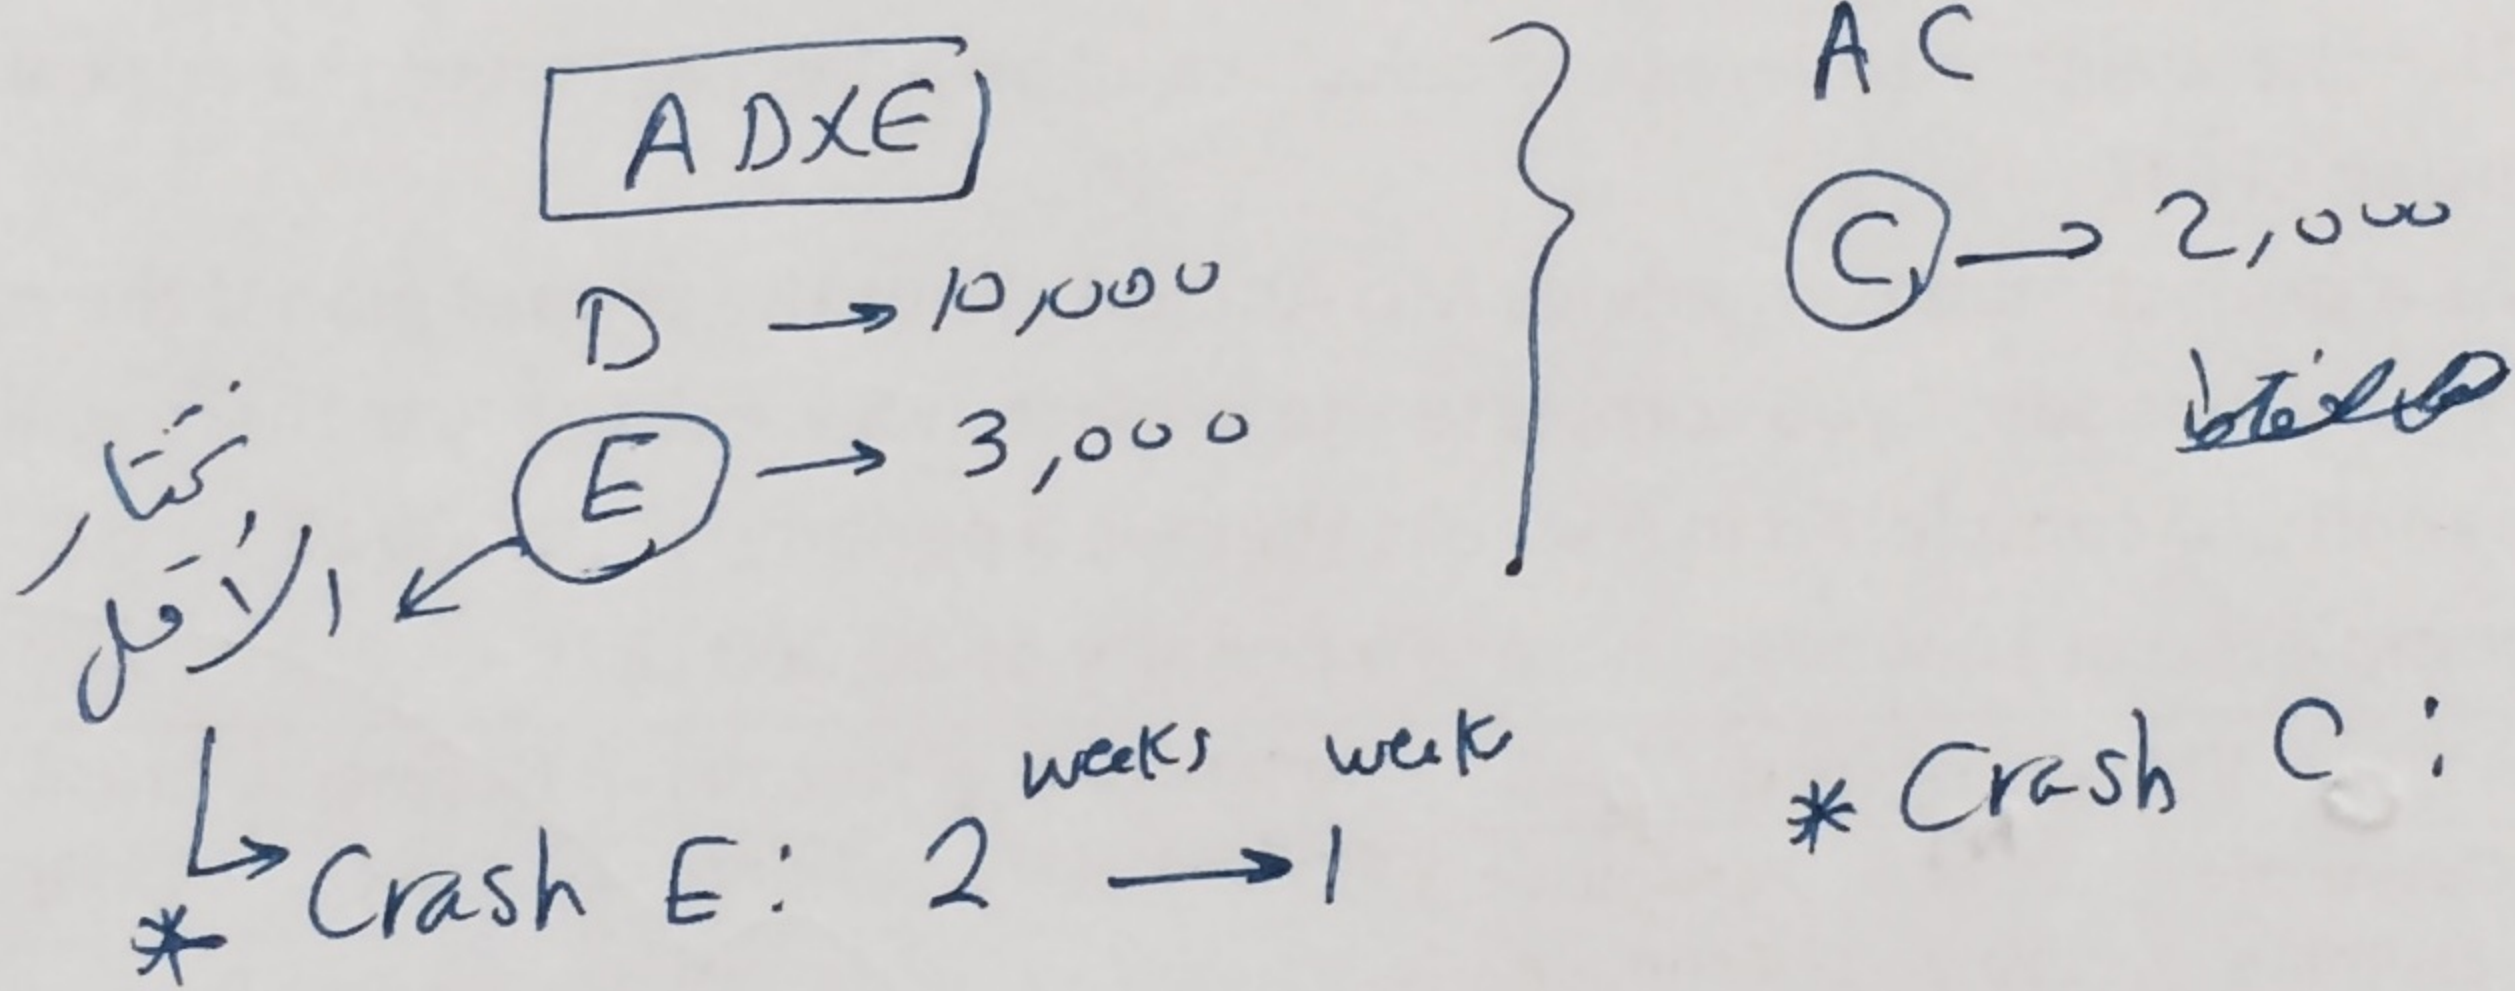 A D X E
D → 10,000
E → 3,000
نختار
الأقل
* Crash E: 2 weeks → 1 week
A C
C → 2,000
* Crash C :